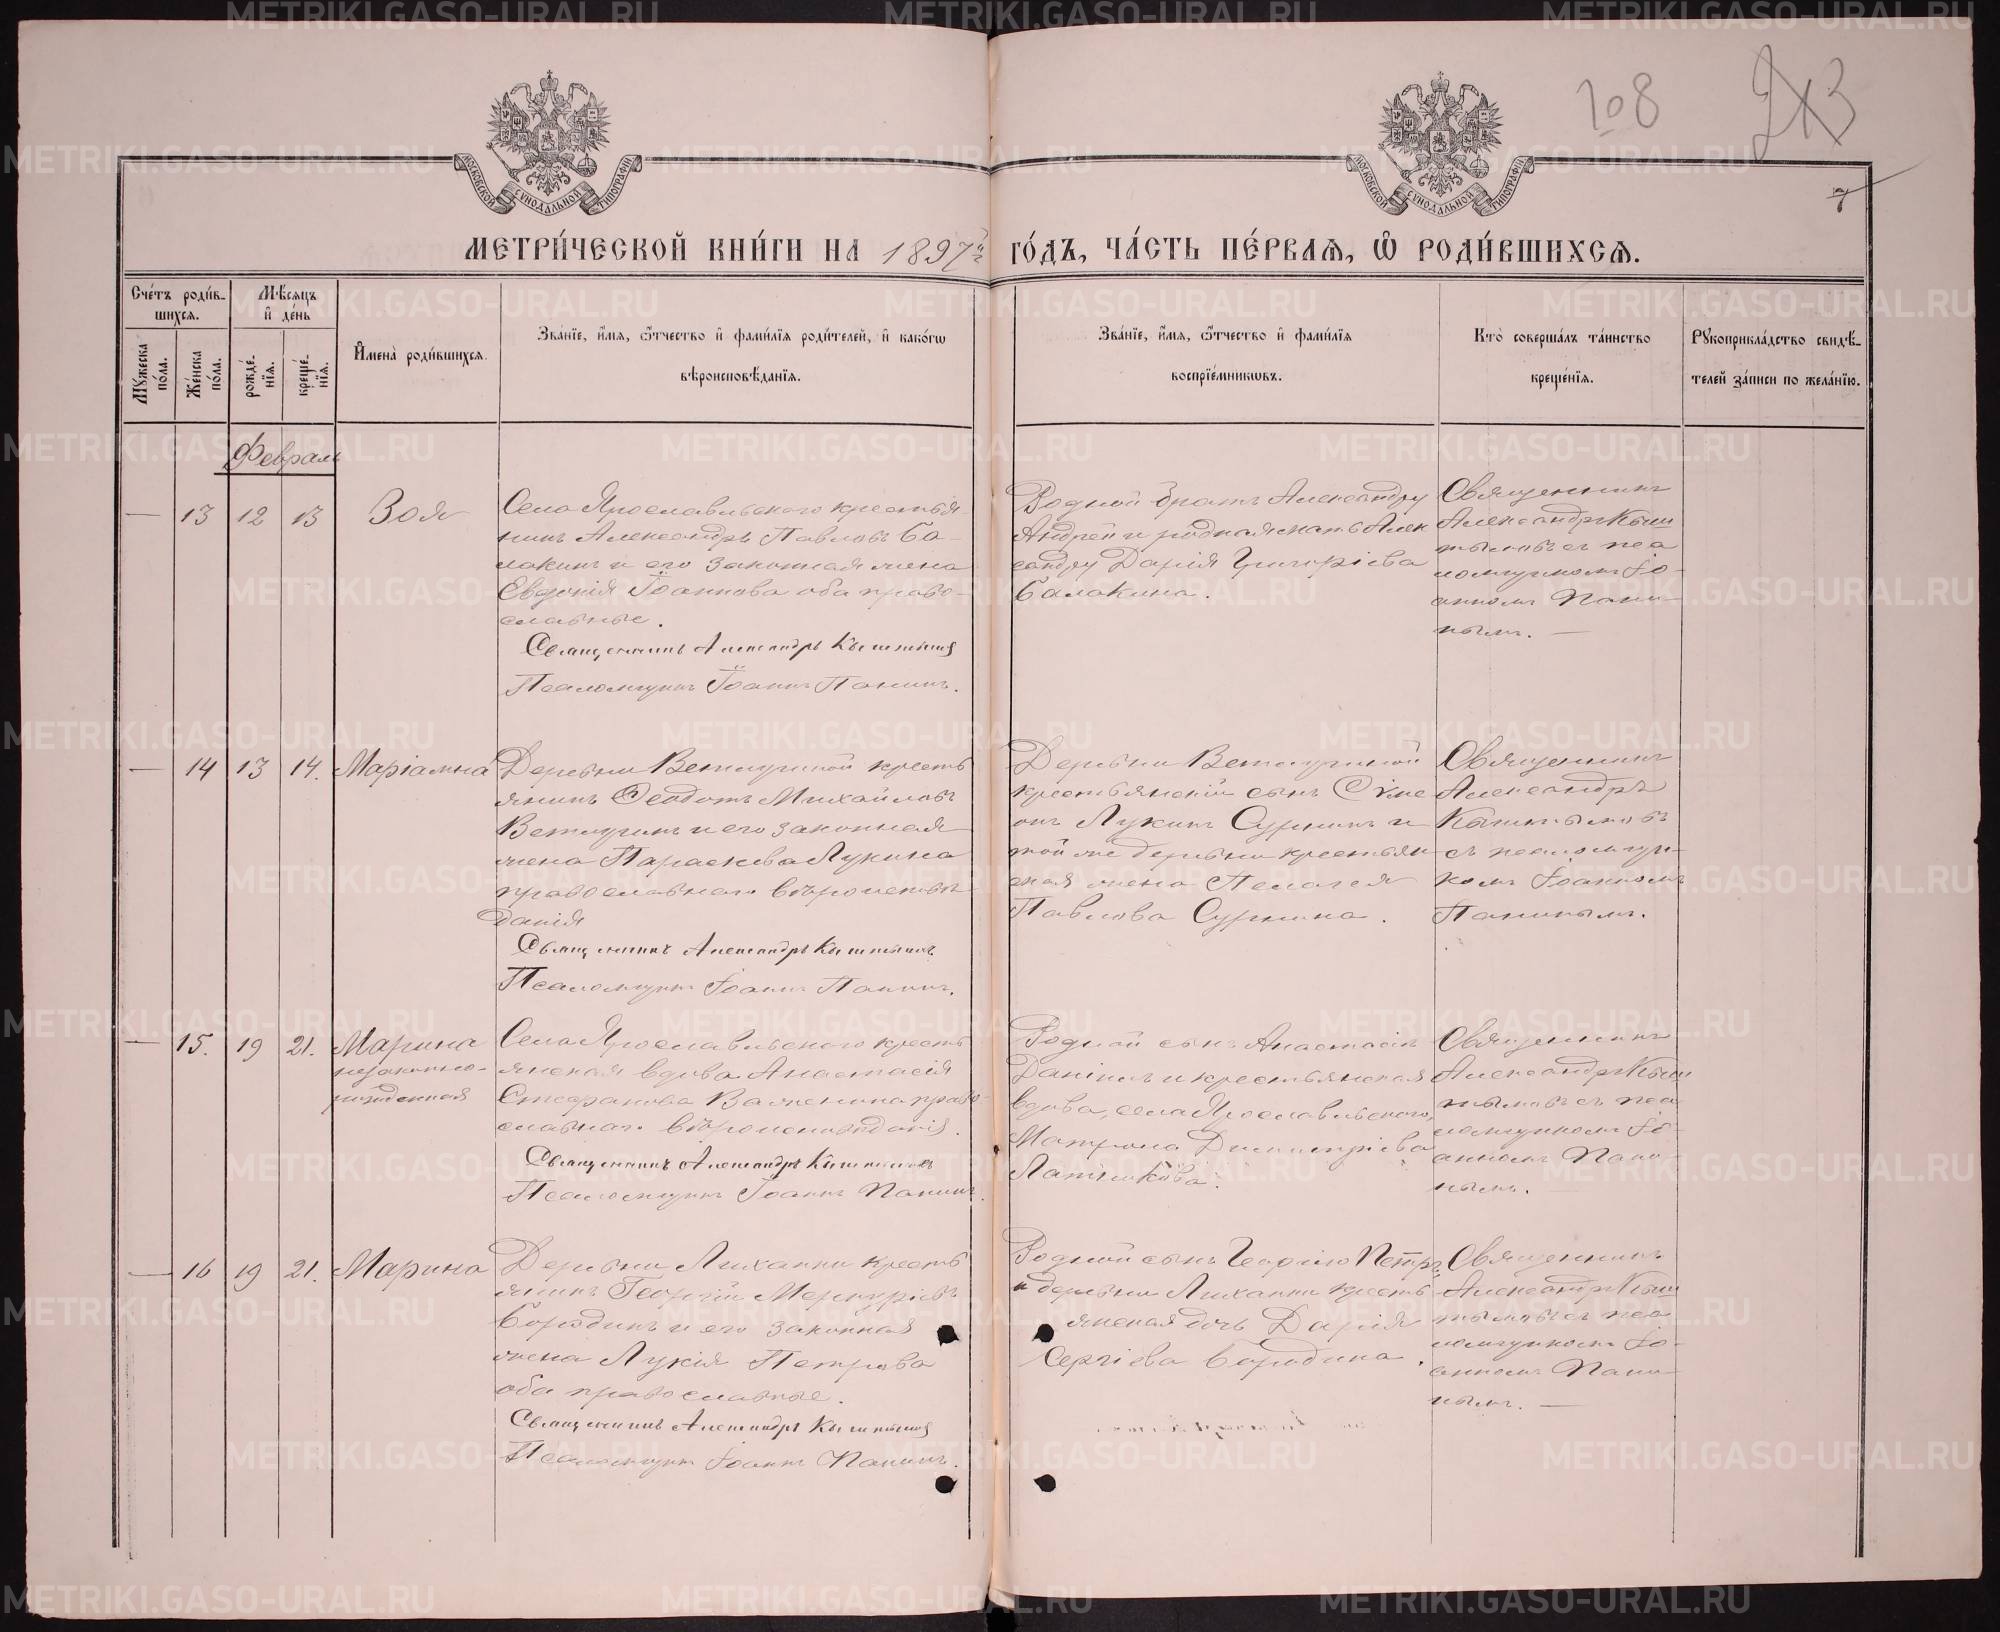 108
2x3
7
МОСКОВСКОЙ СѴНОДАЛЬНОЙ ТИПОГРАФІИ
МОСКОВСКОЙ СѴНОДАЛЬНОЙ ТИПОГРАФІИ
МЕТРИ́ЧЕСКОЙ КНИ́ГИ НА 1897й ГО́ДЪ, ЧА́СТЬ ПЕ́РВАѦ, Ѡ РОДИ́ВШИХСѦ.
Сче́тъ роди́в-
шихсѧ.
Мꙋжеска по́ла.
Же́нска по́ла.
Мѣ́сѧцъ и де́нь
рожде́-
нїѧ.
креще́-
нїѧ.
Имена̀ роди́вшихсѧ.
Зва́нїе, и́мѧ, ѻ́тчество и фами́лїѧ роди́телей, и како́гѡ
вѣроисповѣ́данїѧ.
Зва́нїе, и́мѧ, ѻ́тчество и фами́лїѧ
воспрїе́мникѡвъ.
Кто̀ соверша́лъ та́инство
креще́нїѧ.
Рꙋкоприкла́дство свидѣ́-
телей за́писи по жела́нїю.
Февраль
— 13 12 13 Зоя
Села Ярославльскаго крестья-
нинъ Александръ Павловъ Ба-
лакинъ и его законная жена
Евдокія Іоаннова оба право-
славные.
Священникъ Александръ Кыштымовъ
Псаломщикъ Іоаннъ Панинъ.
Родной братъ Александру
Андрей и родная мать Алек
сандру Дарія Григоріева
Балакина.
Священникъ
Александръ Кыш
тымовъ съ пса
ломщикомъ Іо-
анномъ Пани-
нымъ. —
— 14 13 14. Маріамна
Деревни Ветлугиной кресть
янинъ Ѳеодотъ Михайловъ
Ветлугинъ и его законная
жена Параскева Лукина
православнаго вѣроисповѣ
данія
Священникъ Александръ Кыштымовъ
Псаломщикъ Іоаннъ Панинъ.
Деревни Ветлугиной
крестьянскій сынъ Сѵме
онъ Лукинъ Суркинъ и
той же деревни крестьян
ская жена Пелагея
Павлова Суркина.
Священникъ
Александръ
Кыштымовъ
съ псаломщи-
комъ Іоанномъ
Панинымъ.
— 15. 19 21. Марина
незаконно-
рожденная
Села Ярославльскаго кресть
янская вдова Анастасія
Стефанова Важенина право-
славнаго вѣроисповѣданія.
Священникъ Александръ Кыштымовъ
Псаломщикъ Іоаннъ Панинъ.
Родной сынъ Анастасіи
Даніилъ и крестьянская
вдова, села Ярославльскаго,
Матрона Димитріева
Священникъ
Александръ Кыш
тымовъ съ пса
ломщикомъ Іо-
анномъ Пани-
нымъ. —
— 16 19 21. Марина
Деревни Лиханки кресть
янинъ Георгій Меркурьевъ
Бородинъ и его законная
жена Лукія Петрова
оба православные.
Священникъ Александръ Кыштымовъ
Псаломщикъ Іоаннъ Панинъ.
Родной сынъ Георгію Петръ
и деревни Лиханки кресть
янская дочь Дарія
Сергіева Бородина.
Священникъ
Александръ Кыш
тымовъ съ пса
ломщикомъ Іо-
анномъ Пани-
нымъ. —
METRIKI.GASO-URAL.RU